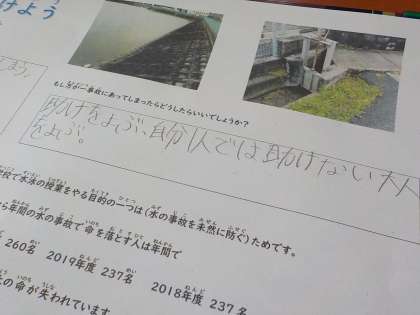 けよう
もし友が事故にあってしまったらどうしたらいいでしょうか?
よう。
助けをよぶ、自分1人では助けない大人
をよぶ。
校で水泳の授業をやる目的の一つは(水の事故を未然に防ぐ)ためです。
年間の水の事故で命を落とす人は年間で
260名 2019年度 237名 2018年度 237名
の命が失われています